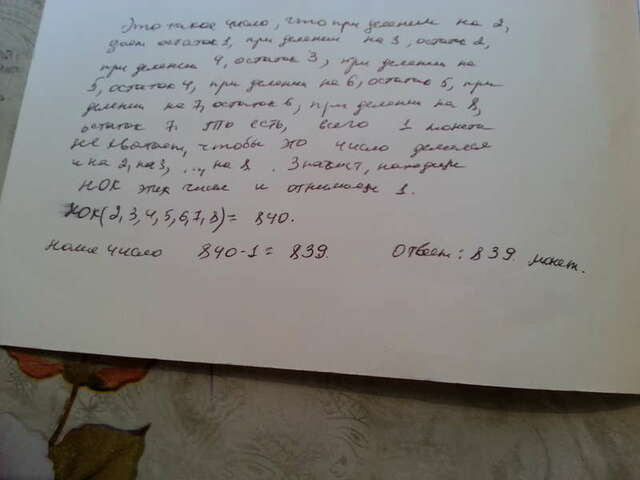 Это такое число, что при делении на 2,
дает остаток 1, при делении на 3, остаток 2,
при делении 4, остаток 3, при делении на
5, остаток 4, при делении на 6, остаток 5, при
делении на 7, остаток 6, при делении на 8,
остаток 7. То есть, всего 1 монета
не хватает, чтобы это число делился
и на 2, на 3, ..., на 8. Значит, находим
НОК этих чисел и отнимаем 1.
НОК(2,3,4,5,6,7,8)= 840.
наше число 840-1= 839. Ответ: 839 монет.